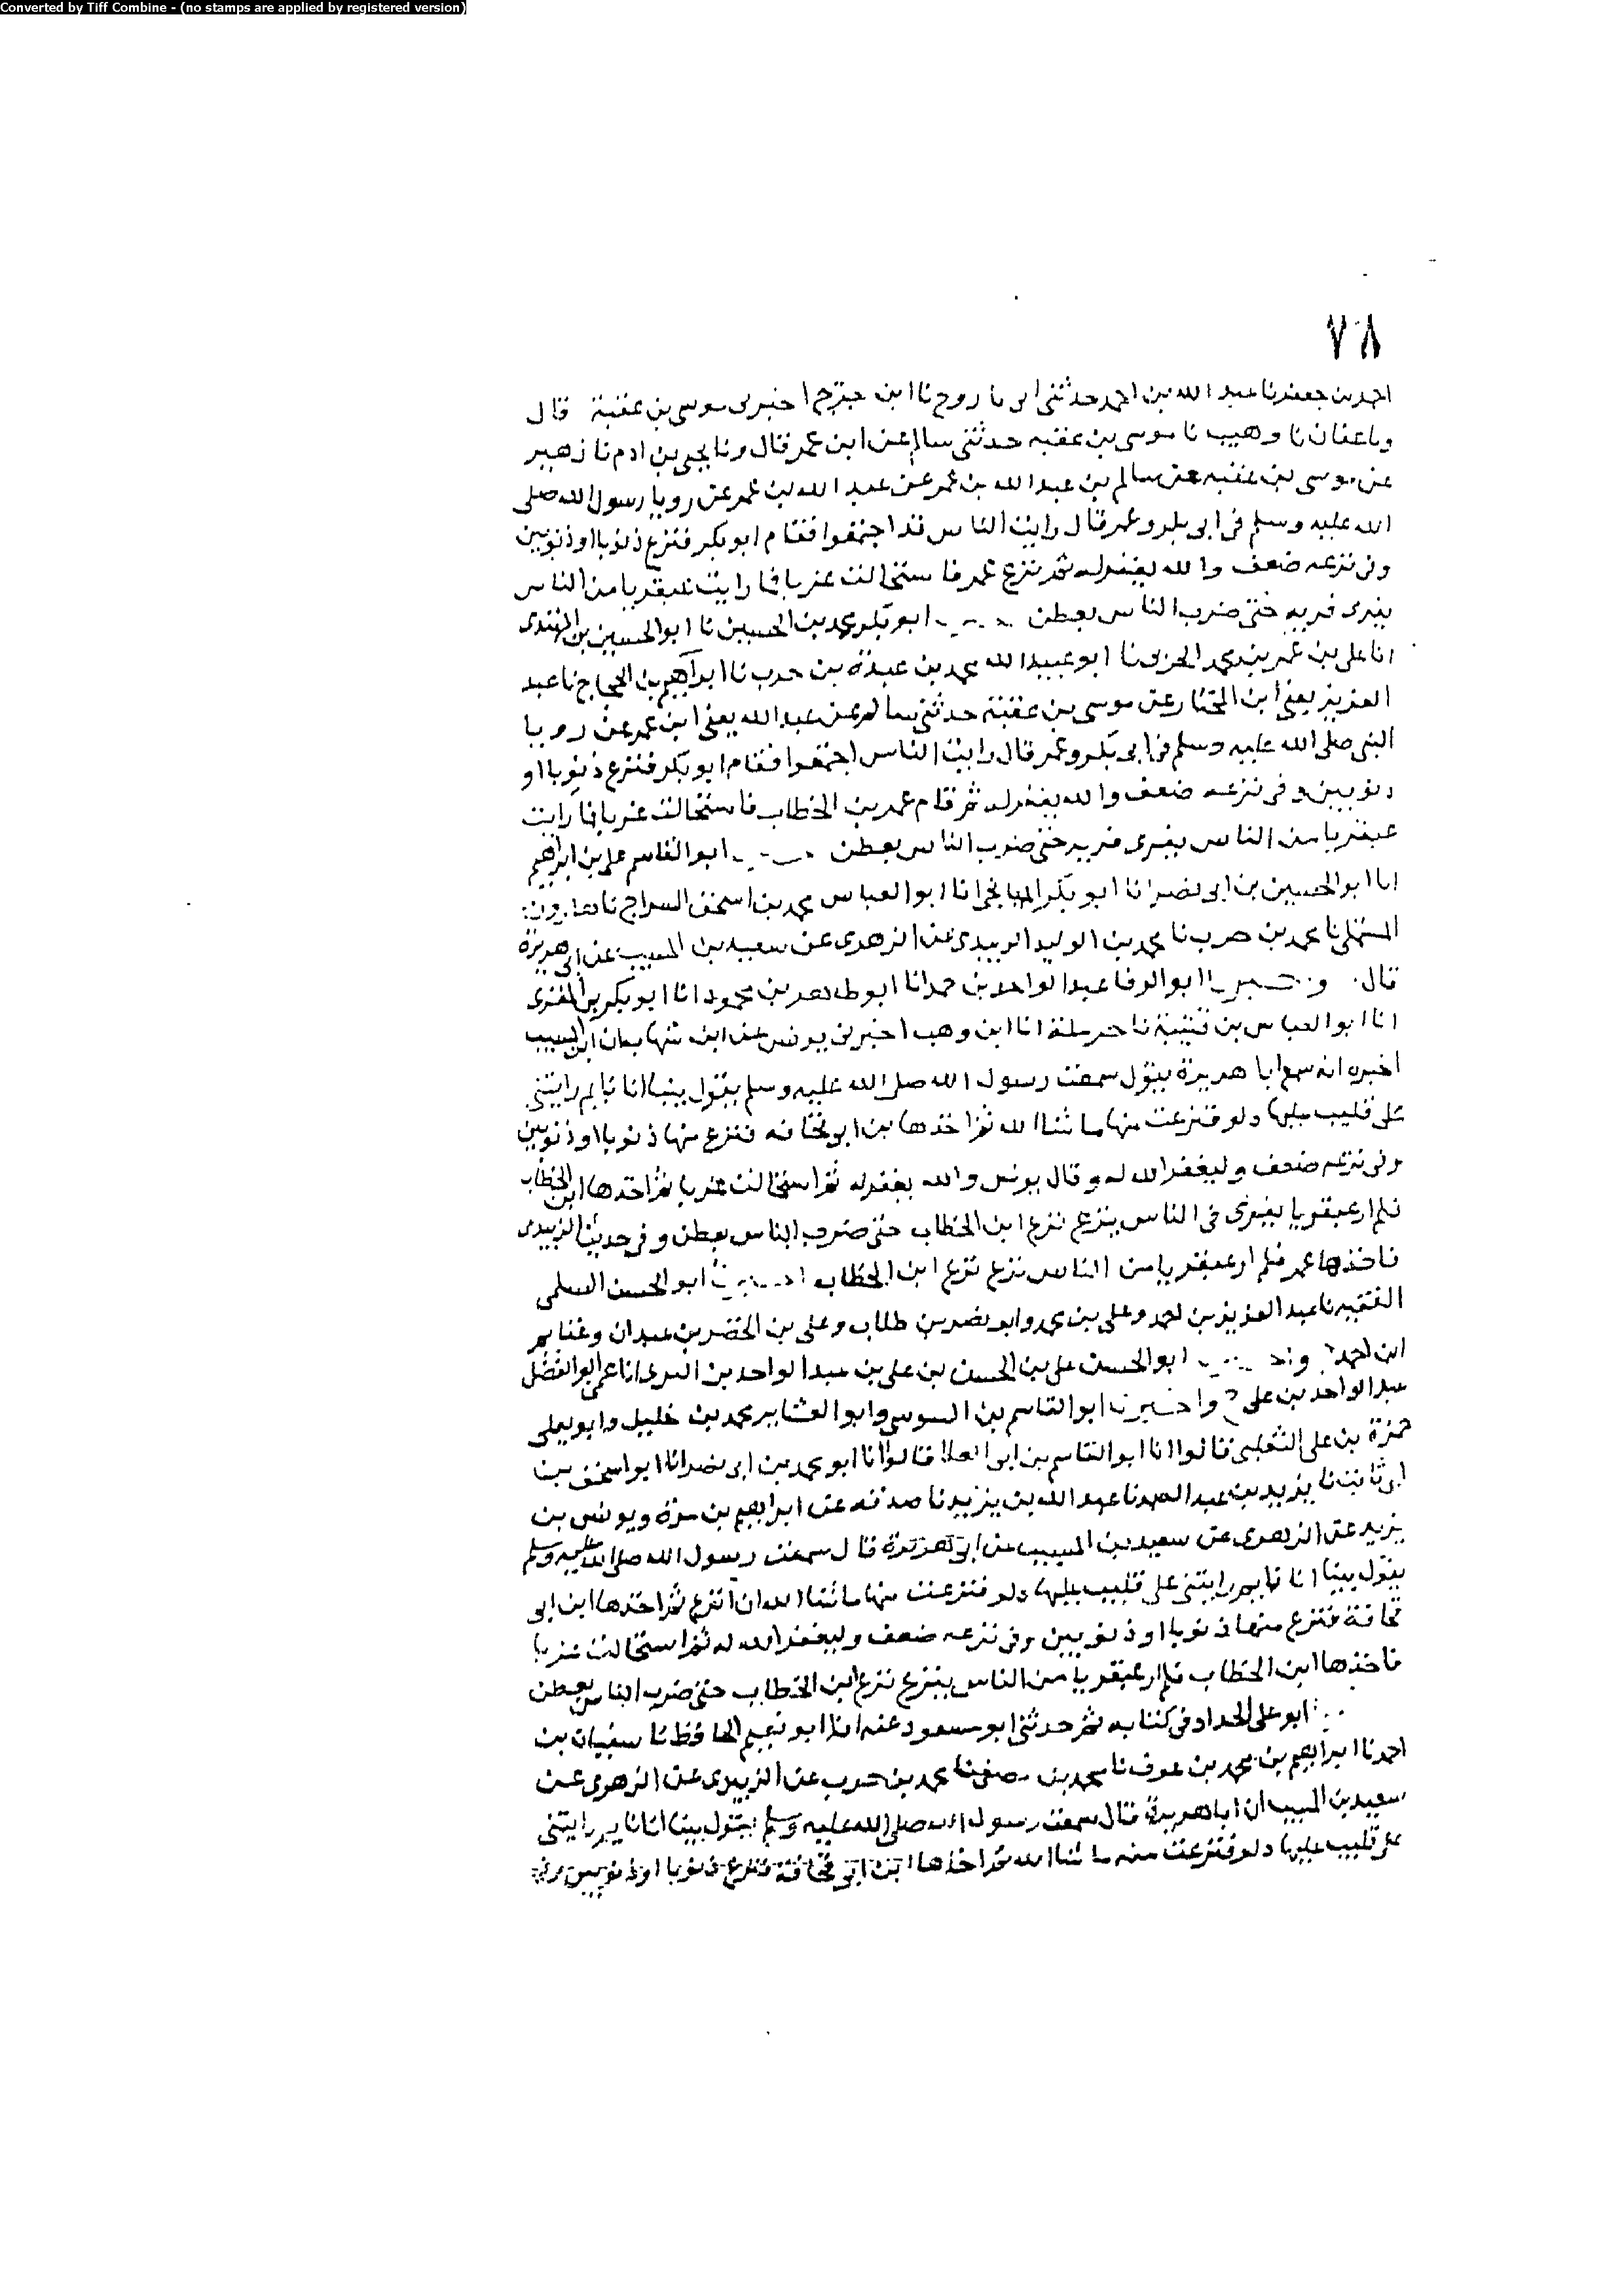 Converted by Tiff Combine - (no stamps are applied by registered version)
٧٨
احمد بن جعفر نا عبد الله بن احمد حدثني ابي نا روح نا ابن جريج اخبرني موسى بن عقبة قال
ونا عفان نا وهيب نا موسى بن عقبه حدثني سالم عن ابن عمر قال ونا يحيى بن ادم نا زهير
عن موسى بن عقبه عن سالم بن عبد الله بن عمر عن عبد الله بن عمر عن رويا رسول الله صلى
الله عليه وسلم في ابي بكر وعمر قال رايت الناس قد اجتمعوا فقام ابو بكر فنزع ذنوبا او ذنوبين
وفي نزعه ضعف والله يغفر له ثم نزع عمر فاستحالت غربا فما رايت عبقريا من الناس
يفري فريه حتى ضرب الناس بعطن ابو بكر محمد بن الحسين نا ابو الحسين بن المهتدي
انا علي بن عمر بن محمد الحربي نا ابو عبيد الله محمد بن عبدة بن حرب نا ابراهيم بن الحجاج نا عبد
العزيز يعني ابن المختار عن موسى بن عقبة حدثني سالم عن عبد الله يعني ابن عمر عن رويا
النبي صلى الله عليه وسلم في ابي بكر وعمر قال رايت الناس اجتمعوا فقام ابو بكر فنزع ذنوبا او
ذنوبين وفي نزعه ضعف والله يغفر له ثم قام عمر بن الخطاب فاستحالت غربا فما رايت
عبقريا من الناس يفري فريه حتى ضرب الناس بعطن ابو القاسم علي بن ابراهيم
انا ابو الحسين بن ابي نصر انا ابو بكر الميانجي انا ابو العباس محمد بن اسحق السراج نا هارون
المستملي نا محمد بن حرب نا محمد بن الوليد الزبيدي عن الزهري عن سعيد بن المسيب عن ابي هريرة
قال واخبرنا ابو الوفا عبد الواحد بن حمد انا ابو طاهر بن محمود انا ابو بكر بن المقري
انا ابو العباس بن قتيبة نا حرملة انا ابن وهب اخبرني يونس عن ابن شهاب ان ابن المسيب
اخبره انه سمع ابا هريرة يقول سمعت رسول الله صلى الله عليه وسلم يقول بينا انا نايم رايتني
على قليب عليها دلو فنزعت منها ما شا الله ثم اخذها بن ابو قحافه فنزع منها ذنوبا او ذنوبين
وفي نزعه ضعف وليغفر الله له وقال يونس والله يغفر له ثم استحالت غربا ثم اخذها ابن الخطاب
فلم ار عبقريا يفري في الناس ينزع نزع ابن الخطاب حتى ضرب الناس بعطن وفي حديث الزبيدي
فاخذها عمر فلم ار عبقريا من الناس نزع نزع ابن الخطاب اخبرنا ابو الحسن السلمي
الفقيه نا عبد العزيز بن احمد وعلي بن محمد وابو نصر بن طلاب وعلي بن الخضر بن عبدان وغنايم
ابن احمد ابو الحسن علي بن الحسن بن علي بن عبد الواحد بن البري انا عمي ابو الفضل
عبد الواحد بن علي ح واخبرنا ابو القاسم بن السوسي وابو العشاير محمد بن خليل وابو يعلى
حمزة بن علي الثعلبي قالوا انا ابو القاسم بن ابي العلا قالوا انا ابو محمد بن ابي نصر انا ابو اسحق بن
ابي ثابت نا يزيد بن عبد الصمد نا عبد الله بن يزيد نا صدقه عن ابراهيم بن مرة ويونس بن
يزيد عن الزهري عن سعيد بن المسيب عن ابي هريرة قال سمعت رسول الله صلى الله عليه وسلم
يقول بينا انا نايم رايتني على قليب عليها دلو فنزعت منها ما شا الله ان انزع ثم اخذها ابن ابي
قحافة فنزع منها ذنوبا او ذنوبين وفي نزعه ضعف وليغفر الله له ثم استحالت غربا
فاخذها ابن الخطاب فلم ار عبقريا من الناس ينزع نزع ابن الخطاب حتى ضرب الناس بعطن
ابو علي الحداد في كتابه ثم حدثني ابو مسعود عنه انا ابو نعيم الحافظ نا سفيان بن
احمد نا ابراهيم بن محمد بن عوف نا محمد بن مصفى نا محمد بن حرب عن الزبيدي عن الزهري عن
سعيد بن المسيب ان ابا هريرة قال سمعت رسول الله صلى الله عليه وسلم يقول بينا انا نايم رايتني
على قليب عليها دلو فنزعت منه ما شا الله ثم اخذها ابن ابي قحافة فنزع ذنوبا او ذنوبين وفي